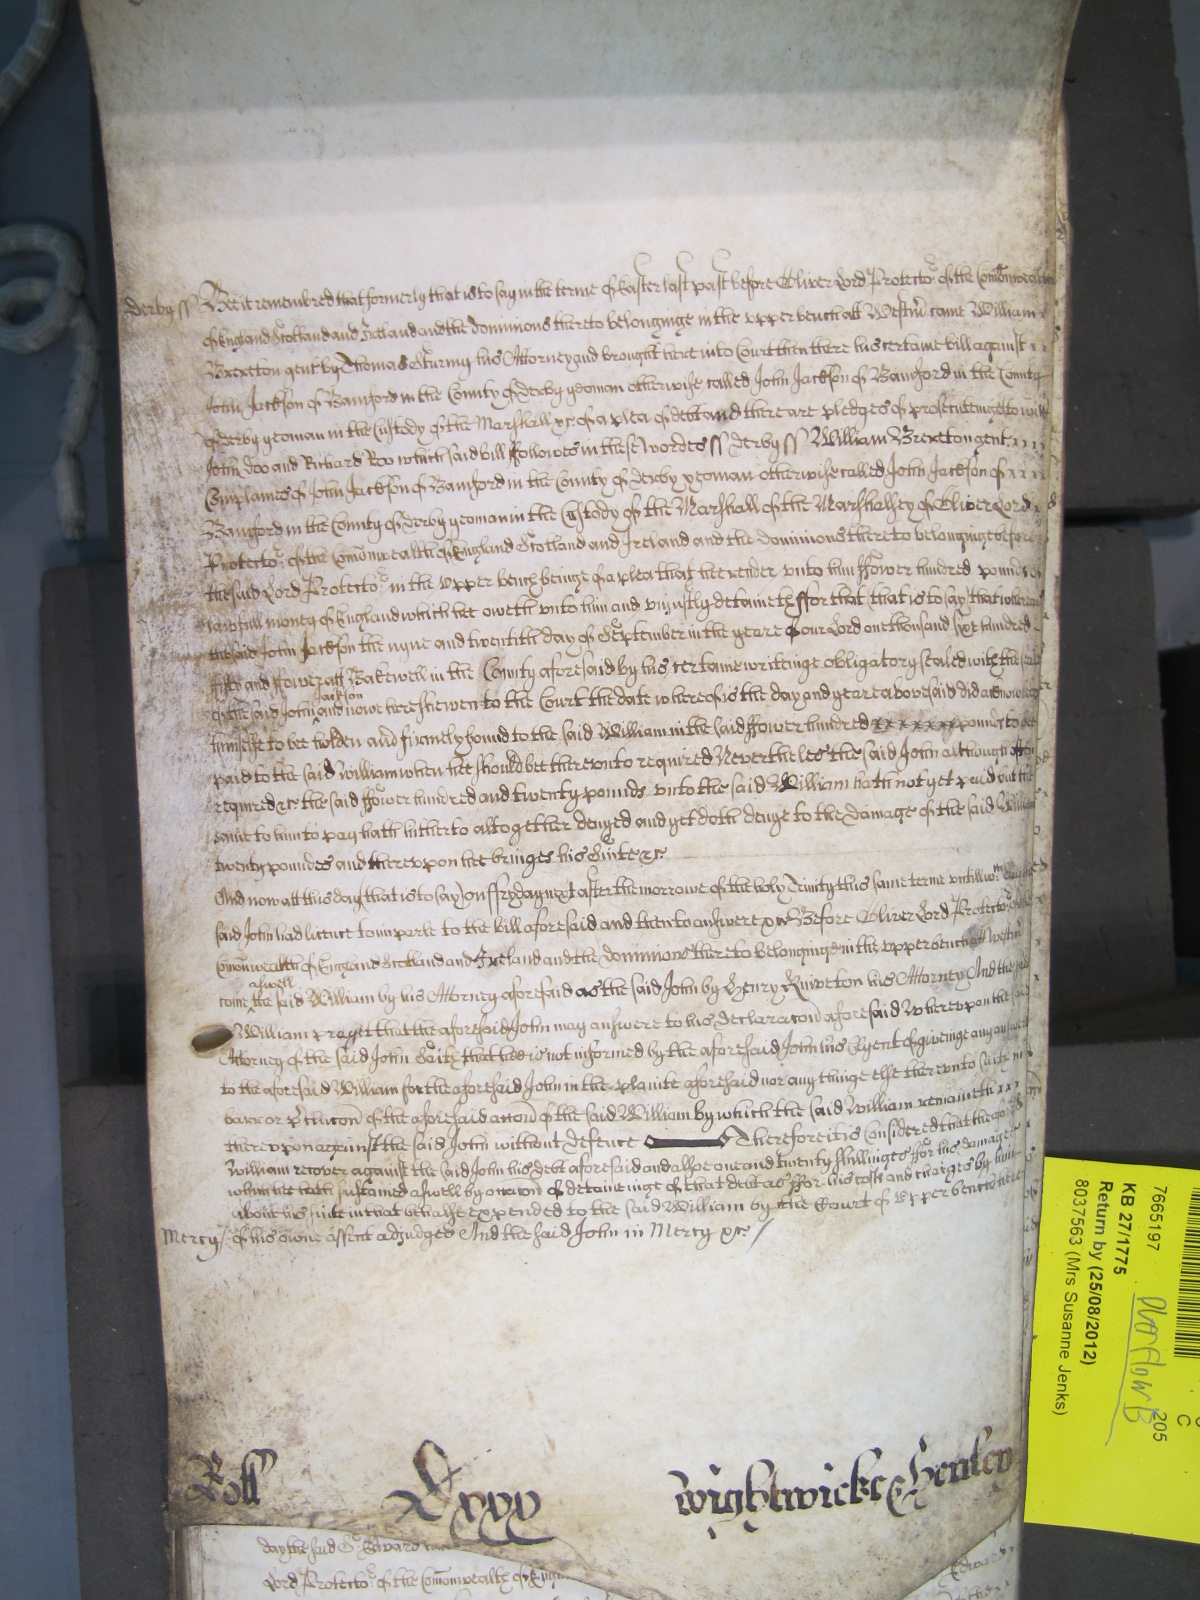 Derby ss Bee it remembred that formerly that is to say in the terme of Easter last past before Oliver Lord Protector of the Comonwealth
of England Scotland and Ireland and the dominions thereto belonginge in the upper bench att Westm̄ came William
Brereton gent by Thomas Sturmy his Attorney and brought here into Court then there his certaine bill against x x
John Jackson of Bamford in the County of derby yeoman otherwise called John Jackson of Bamford in the County
of derby yeoman in the Custody of the Marshall &c of a plea of debt and there are pledges of prosecutenge to witt
John Doo and Richard Roo which said bill followes in these wordes ss derby ss William Brereton gent x x x
Complaines of John Jackson of Bamford in the County of derby yeoman otherwise called John Jackson of x x x
Bamford in the County of derby yeoman in the Custody of the Marshall of the Marshallsey of Oliver Lord
Protector of the Comonwealth of England Scotland and Ireland and the dominions thereto belonginge before
the said Lord Protector in the upper bench beinge of a plea that hee render unto him ffower hundred pounds of
lawfull money of England which hee oweth unto him and uniustly detaineth ffor that that is to say that whereas
the said John Jackson the nyne and twentith day of September in the yeare of our Lord one thousand sixe hundred
fifty and ffower att Bakewell in the County aforesaid by his certaine writeinge obligatory sealed with the seale
Jackson
of the said John and nowe here shewen to the Court the date whereof is the day and yeare abovesaid did acknowledge
himselfe to bee holden and firmely bound to the said William in the said ffower hundred pounds to bee
paid to the said William when hee should bee thereunto required Neverthelesse the said John although often
required &c the said ffower hundred and twenty pounds unto the said William hath not yet paid but the
same to him to pay hath hitherto altogether denyed and yet doth denye to the damage of the said William
twenty poundes and thereupon hee bringes his suite &c
And now att this day that is to say on ffryday next after the morrowe of the holy Trinity this same terme untill wch day the
said John had licence to imparle to the bill aforesaid and then to answere &c Before Oliver Lord Protector of the
Comonwealth of England Scotland and Ireland and the dominions thereto belonginge in the upper bench att Westm̄
aswell
come the said William by his Attorney aforesaid as the said John by Henry his Attorney And the said
William prayet that the aforesaid John may answere to his declaracon aforesaid Whereupon the said
Attorney of the said John saith that hee is not informed by the aforesaid John his Clyent of giveinge any answere
to the aforesaid William for the aforesaid John in the plainte aforesaid nor any thinge else thereunto saith in
barr or p'clucon of the aforesaid accon of the said William by which the said William remaineth x x x
thereupon against the said John without defence Therefore it is Considered that the said
William recover against the said John his debt aforesaid and alsoe one and twenty shillinges ffor his damages
which hee hath sustained aswell by occacon of detaineinge of that debt as ffor his costs and charges by him
about his suite in that behalfe expended to the said William by the Court of Upper bench here
Mercy of his owne assent adiudged And the said John in Mercy &c
Roll Lxxx Wightwicke & Henley
day the said Sr Edward
Lord Protector of the Comonwealth of
Edward
7665197
KB 27/1775
Return by (25/08/2012)
8037563 (Mrs Susanne Jenks)
Overflow B
205
C